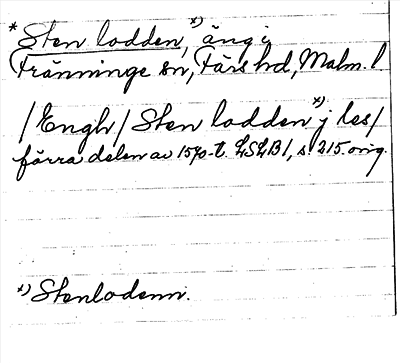 * Sten lodden, x) äng i
Tränninge sn, Färs hd, Malm. l
/Engh/ Sten lodden x) j les/
förra delen av 1570-t. LSLB1, s 215. orig.
x) Stenlodenn.